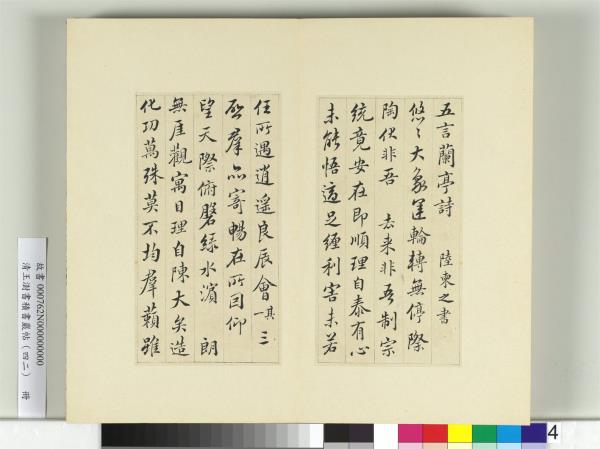 五言蘭亭詩 陸柬之書
悠〻大象運輪轉無停際
陶化非吾 去来非吾制宗
統竟安在即順理自泰有心
未能悟適足纏利害未若
任所遇逍遥良辰會其一三
啓羣品寄暢在所因仰
望天際俯磐綠水濱 朗
無厓觀寓目理自陳大矣造
化功萬殊莫不均羣籟雖
故書 000762N000000000
清王澍書積書巖帖（四二） 冊
4